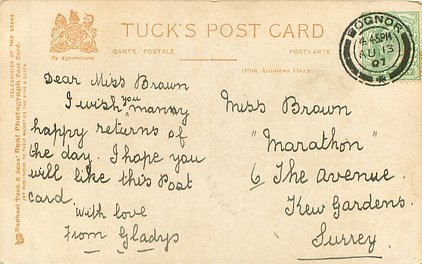 TUCK'S POST CARD
CARTE POSTALE
POSTKARTE
By Appointment
(FOR ADDRESS ONLY)
CELEBRITIES OF THE STAGE
Raphael Tuck & Sons' Real Photograph Post Card.
ART PUBLISHERS TO THEIR MAJESTIES THE KING & QUEEN.
BOGNOR
45PM
AU 13
07
Dear Miss Brown
I wish you manny
happy returns of
the day. I hope you
will like this Post
card.
With love
From Gladys
Miss Brown
"Marathon"
6, The Avenue.
Kew Gardens.
Surrey.